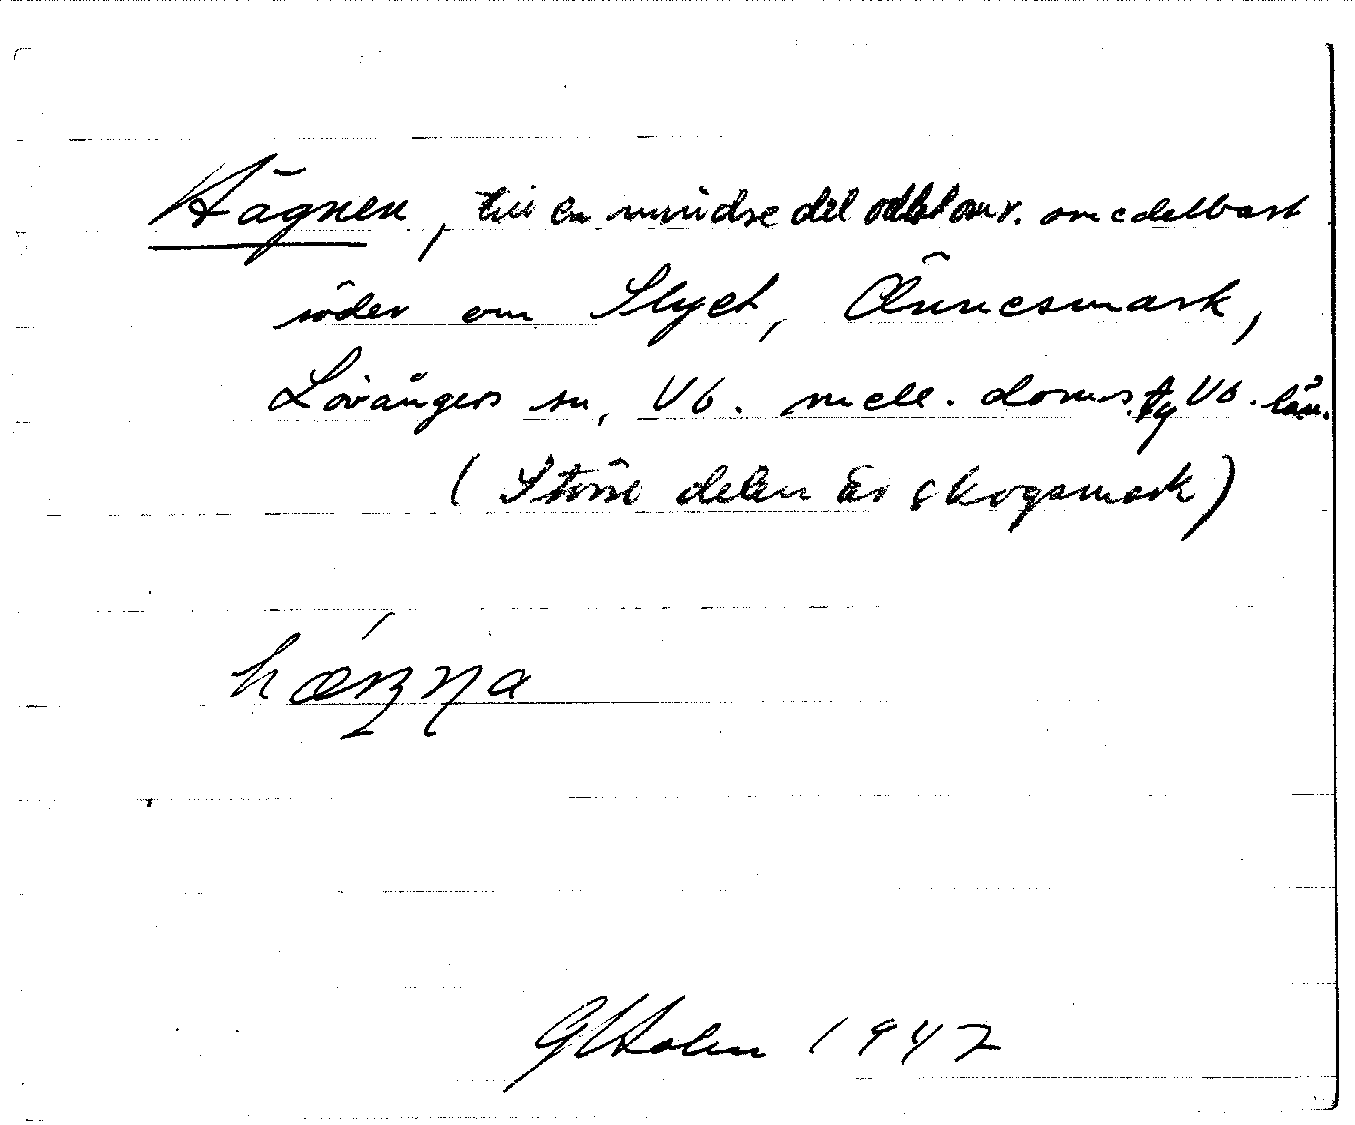 Hägnen, till en mindre del odlat omr. omedelbart
söder om Slyet, Önnesmark,
Lövångers sn, Vb. mell. doms. Vb. län.
(Större delen är skogsmark)
Holm 1947